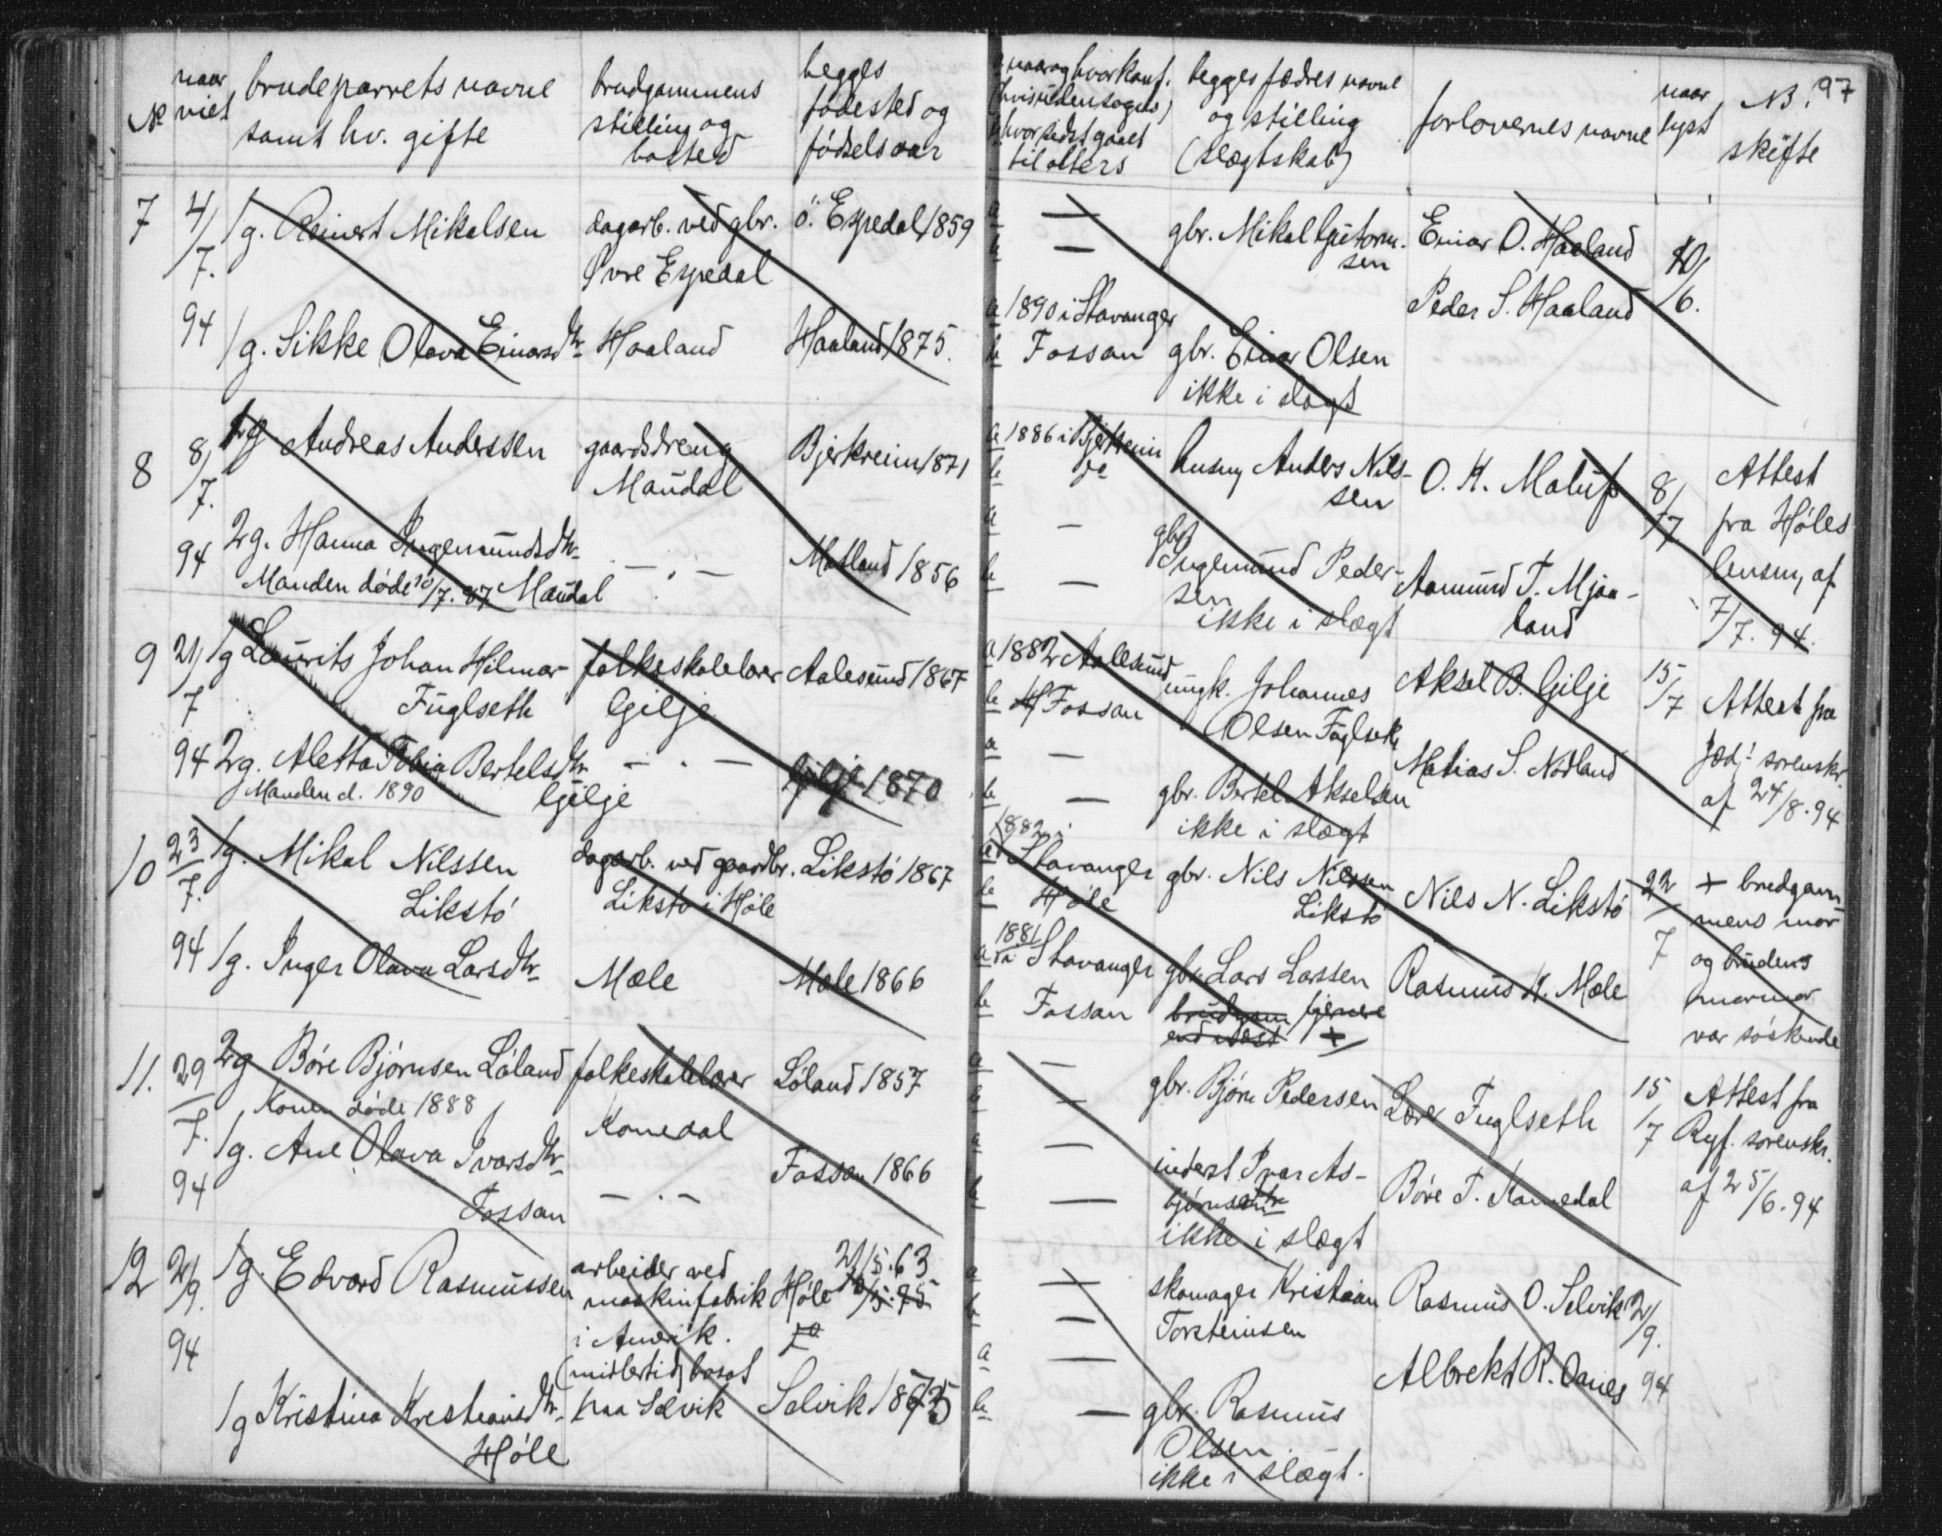 97
№
naar
viet
brudeparrets navne
samt hv. gifte
brudgommens
stilling og
bosted
begges
fødested og
fødselsaar
naar og hvor konf.
(hvis udensogns)
hvor sidst gaaet
til alters
begges fædres navne
og stilling
(slægtskab)
forlovernes navne
naar
lyst
NB.
skifte
7
4/
7.
94
1g. Reinert Mikalsen
dagarb. ved gbr.
Øvre Espedal
ö. Espedal 1859
a —
b —
gbr. Mikal Gutorm-
sen
Einar O. Haaland
Peder S. Haaland
10/
6.
1g. Sikke Olava Einarsdtr.
Haaland
Haaland 1875.
a 1890 i Stavanger
b Fossan
gbr. Einar Olsen
ikke i slægt
8
8/
7.
94
1g Andreas Anderssen
gaardsdreng
Maudal
Bjerkreim 1871
a 1886 i Bjerkreim
b
husm, Anders Nils-
sen
O. K. Maluf
8/
7
Attest
fra Høles
lensm, af
7/7. 94.
2g. Hanna Ingemundsdtr.
Manden døde 10/7. 87 Maudal
— . —
Matland 1856
a —
b —
gbr
Ingemund Peder-
sen
ikke i slægt
Aamund T. Mjaa-
land
9
21/
7
94
1g Laurits Johan Hilmar
Fuglseth
folkeskolelærer
Gilje
Aalesund 1867
a 1882 Aalesund
b Fossan
ungk. Johannes
Olsen Fuglseth
Aksel B. Gilje
15
/7
Attest fra
Jæd. sorenskr.
af 24/8. 94
2g. Aletta Tobia Bertelsdtr.
Manden d. 1890 Gilje
— . —
Gilje 1870
a —
b —
gbr. Bertel Akselsen
ikke i slægt
Matias S. Nødland
10
23
7.
94
1g. Mikal Nilssen
Likstö
dagarb. ved gaardbr.
Likstö i Høle
Likstö 1867
1882 i
a Stavanger
b Høle
gbr. Nils Nilssen
Likstö
Nils N. Likstö
22
7
+ brudgom-
mens mor
og brudens
mormor
var söskende
1g. Inger Olava Larsdtr.
Mæle
Mæle 1866
1881
a i Stavanger
b Fossan
gbr. Lars Larssen
brudgom fjernere
end næst +
Rasmus K. Mæle
11.
29
7.
94
2g Böre Björnsen Löland
Konen døde 1888
folkeskolelærer
Komedal
Löland 1857
a —
b —
gbr. Björn Pedersen
Lærer Fuglseth
15
/7
Attest fra
Ryf. sorenskr.
af 25/6. 94
1g. Ane Olava Ivarsdtr.
Fossan
— . —
Fossan 1866
a —
b —
inderst Ivar As-
björnsen
ikke i slægt
Böre T. Komedal
12
2/
9.
94
1g. Edvard Rasmussen
arbeider ved
maskinfabrik
i Amerik.
(midlertid, bosat
paa Selvik
21/5. 63
Høle
a —
b —
skomager Kristian
Torsteinsen
Rasmus O. Selvik
2/
9.
94
1g Kristina Kristiansdtr.
Höle
Selvik 1873
a —
b —
gbr. Rasmus
Olsen
ikke i slægt.
Albrekt R.